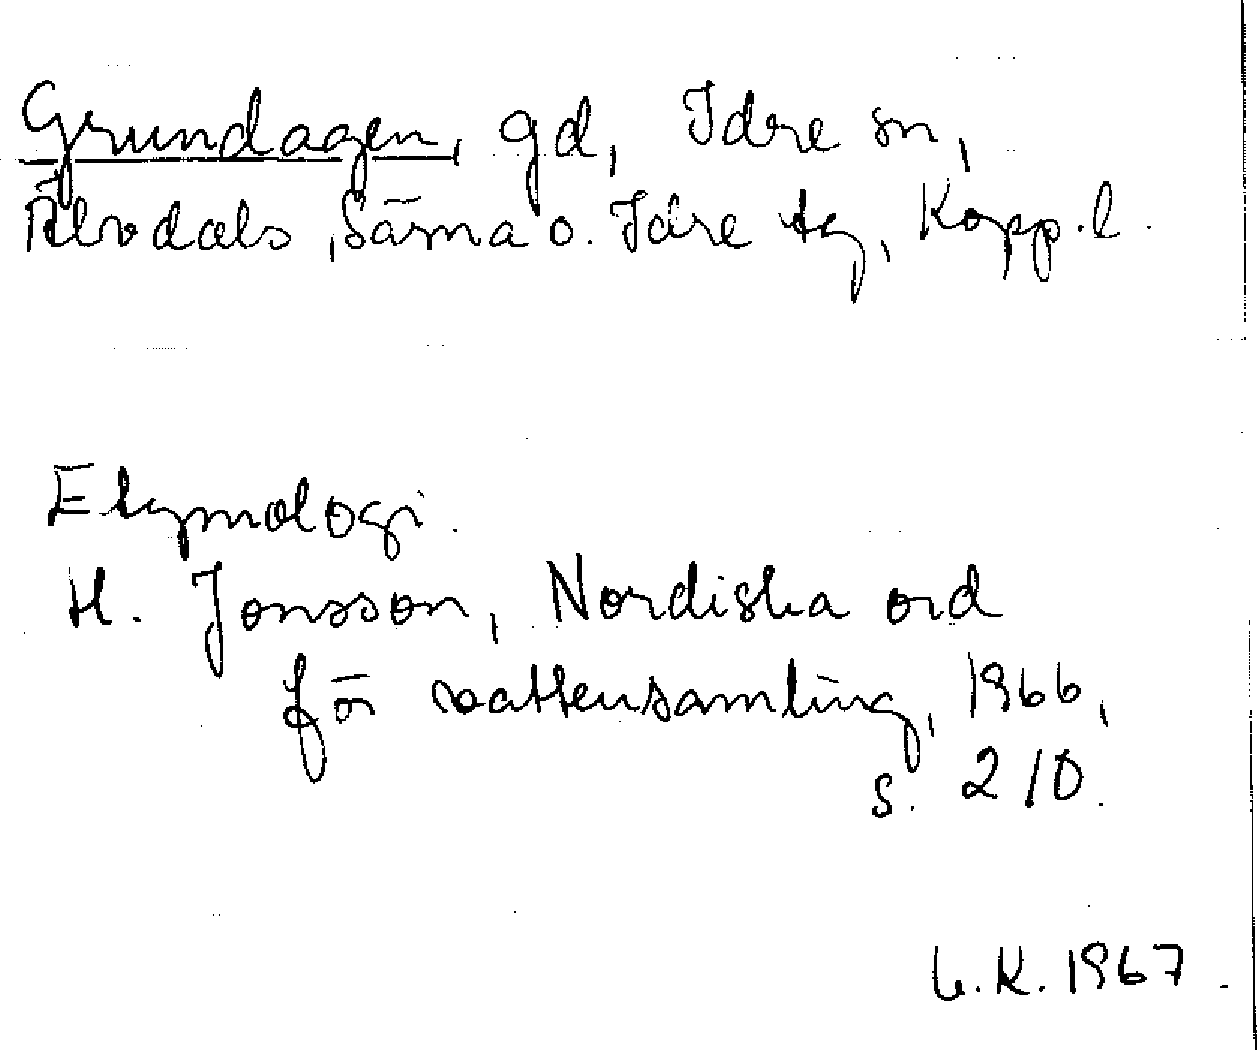 Grundagen, gd, Idre sn,
Älvdals, Särna o. Idre tg, Kopp. l.
Etymologi.
H. Jonsson, Nordiska ord
för vattensamling, 1966,
s. 210.
K. 1967.